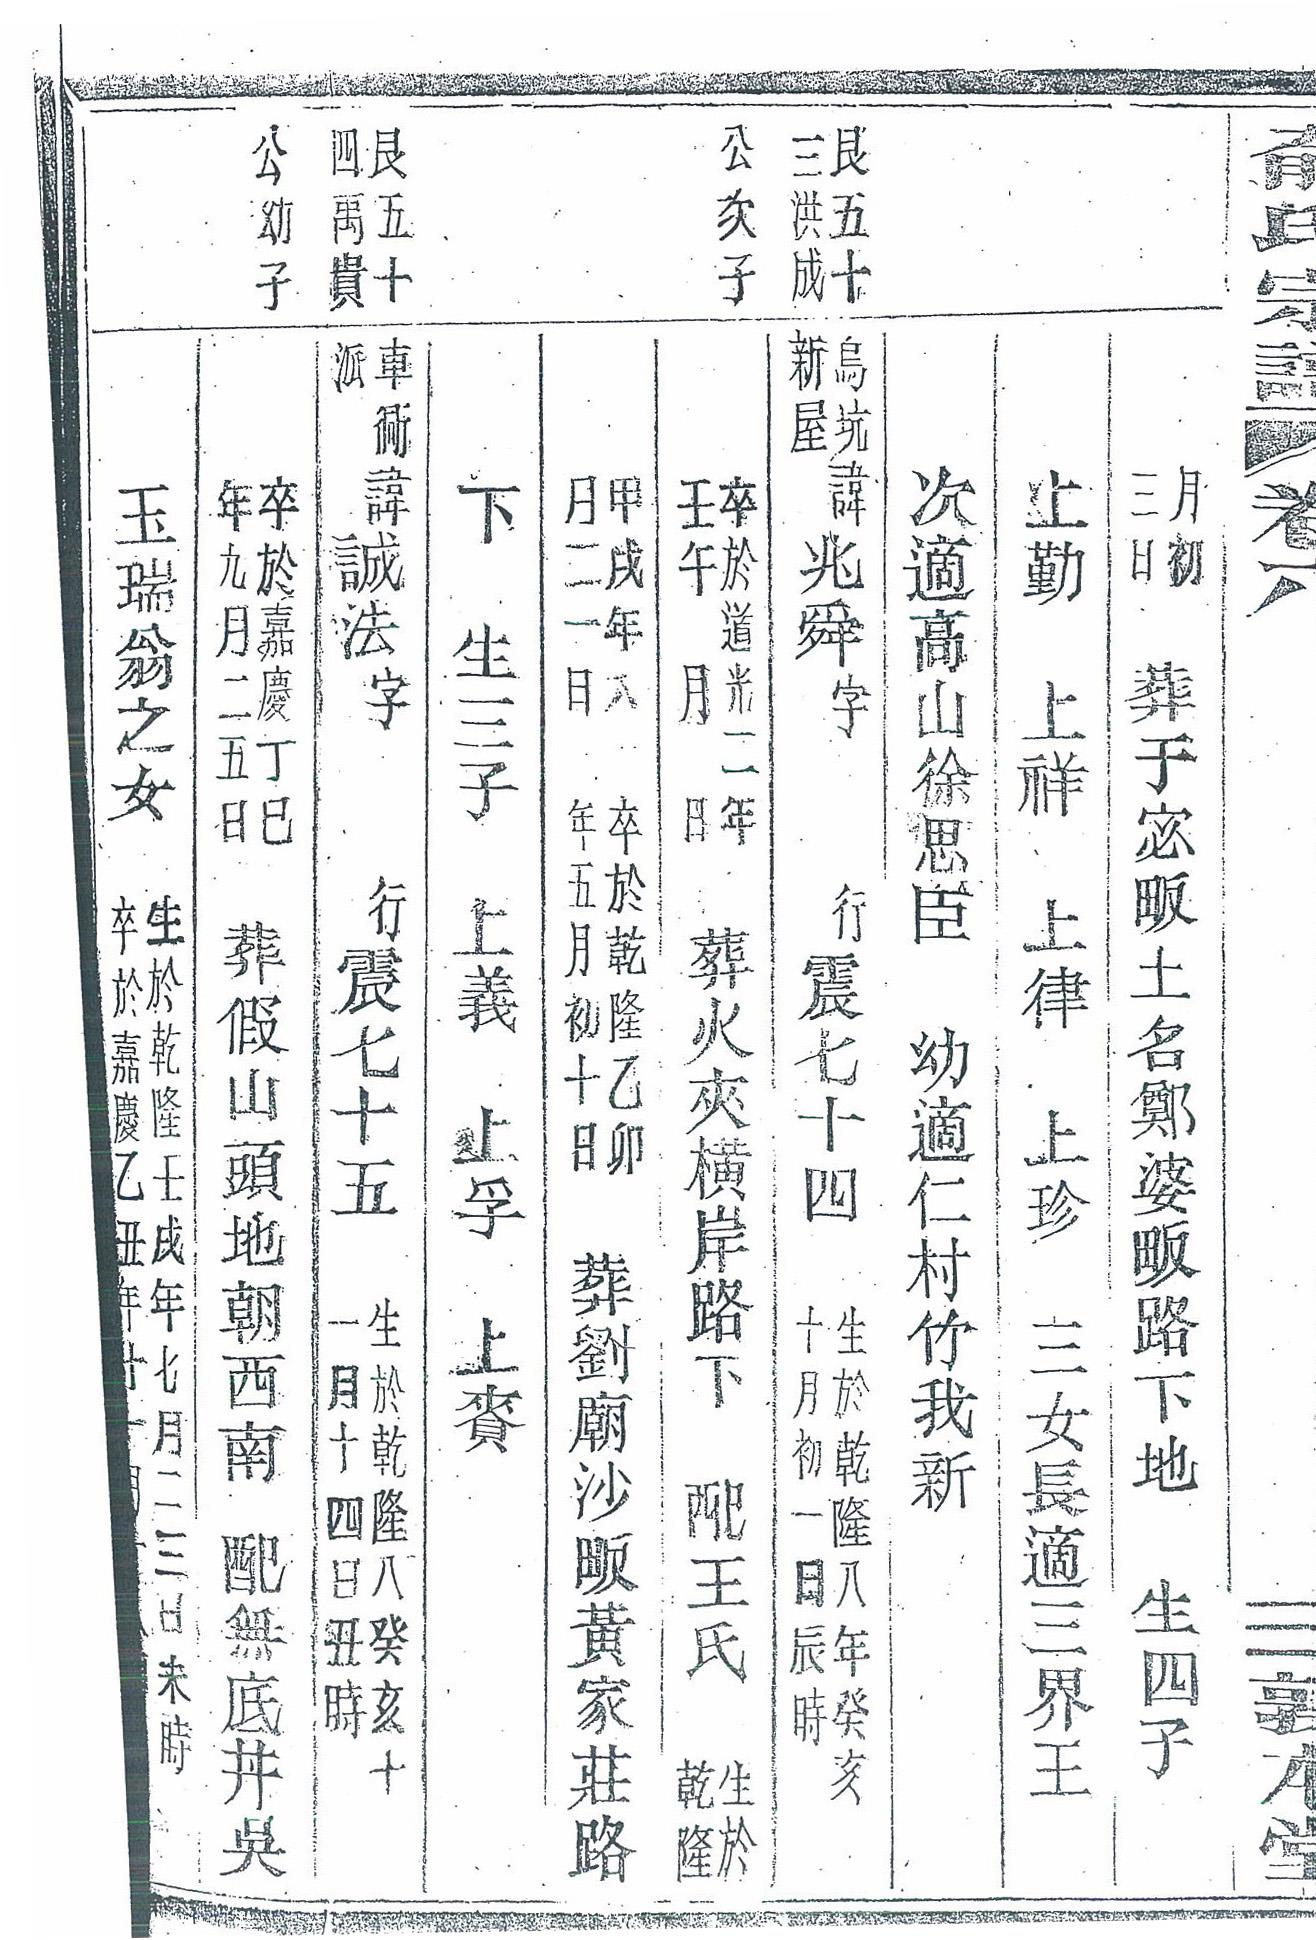 氏宗譜 卷八 三 敦本堂
月初三日 葬于宓畈土名鄭婆畈路下地 生四子
上勤 上祥 上律 上珍 三女長適三界王
次適高山徐思臣 幼適仁村竹我新
艮五十三洪成 烏坑新屋 諱兆舜字 行震七十四 生於乾隆八年癸亥十月初一日辰時
公次子 卒於道光二年壬午 月 日 葬火夾橫岸路下 配王氏 生於乾隆
甲戌年八月二一日 卒於乾隆乙卯年五月初十日 葬劉廟沙畈黃家莊路
下 生三子 上義 上孚 上賚
艮五十四禹貴 車衕派 諱誠法字 行震七十五 生於乾隆八癸亥十一月十四日丑時
公幼子 卒於嘉慶丁巳年九月二五日 葬假山頭地朝西南 配無底井吳
玉瑞翁之女 生於乾隆壬戌年七月二三日未時 卒於嘉慶乙丑年